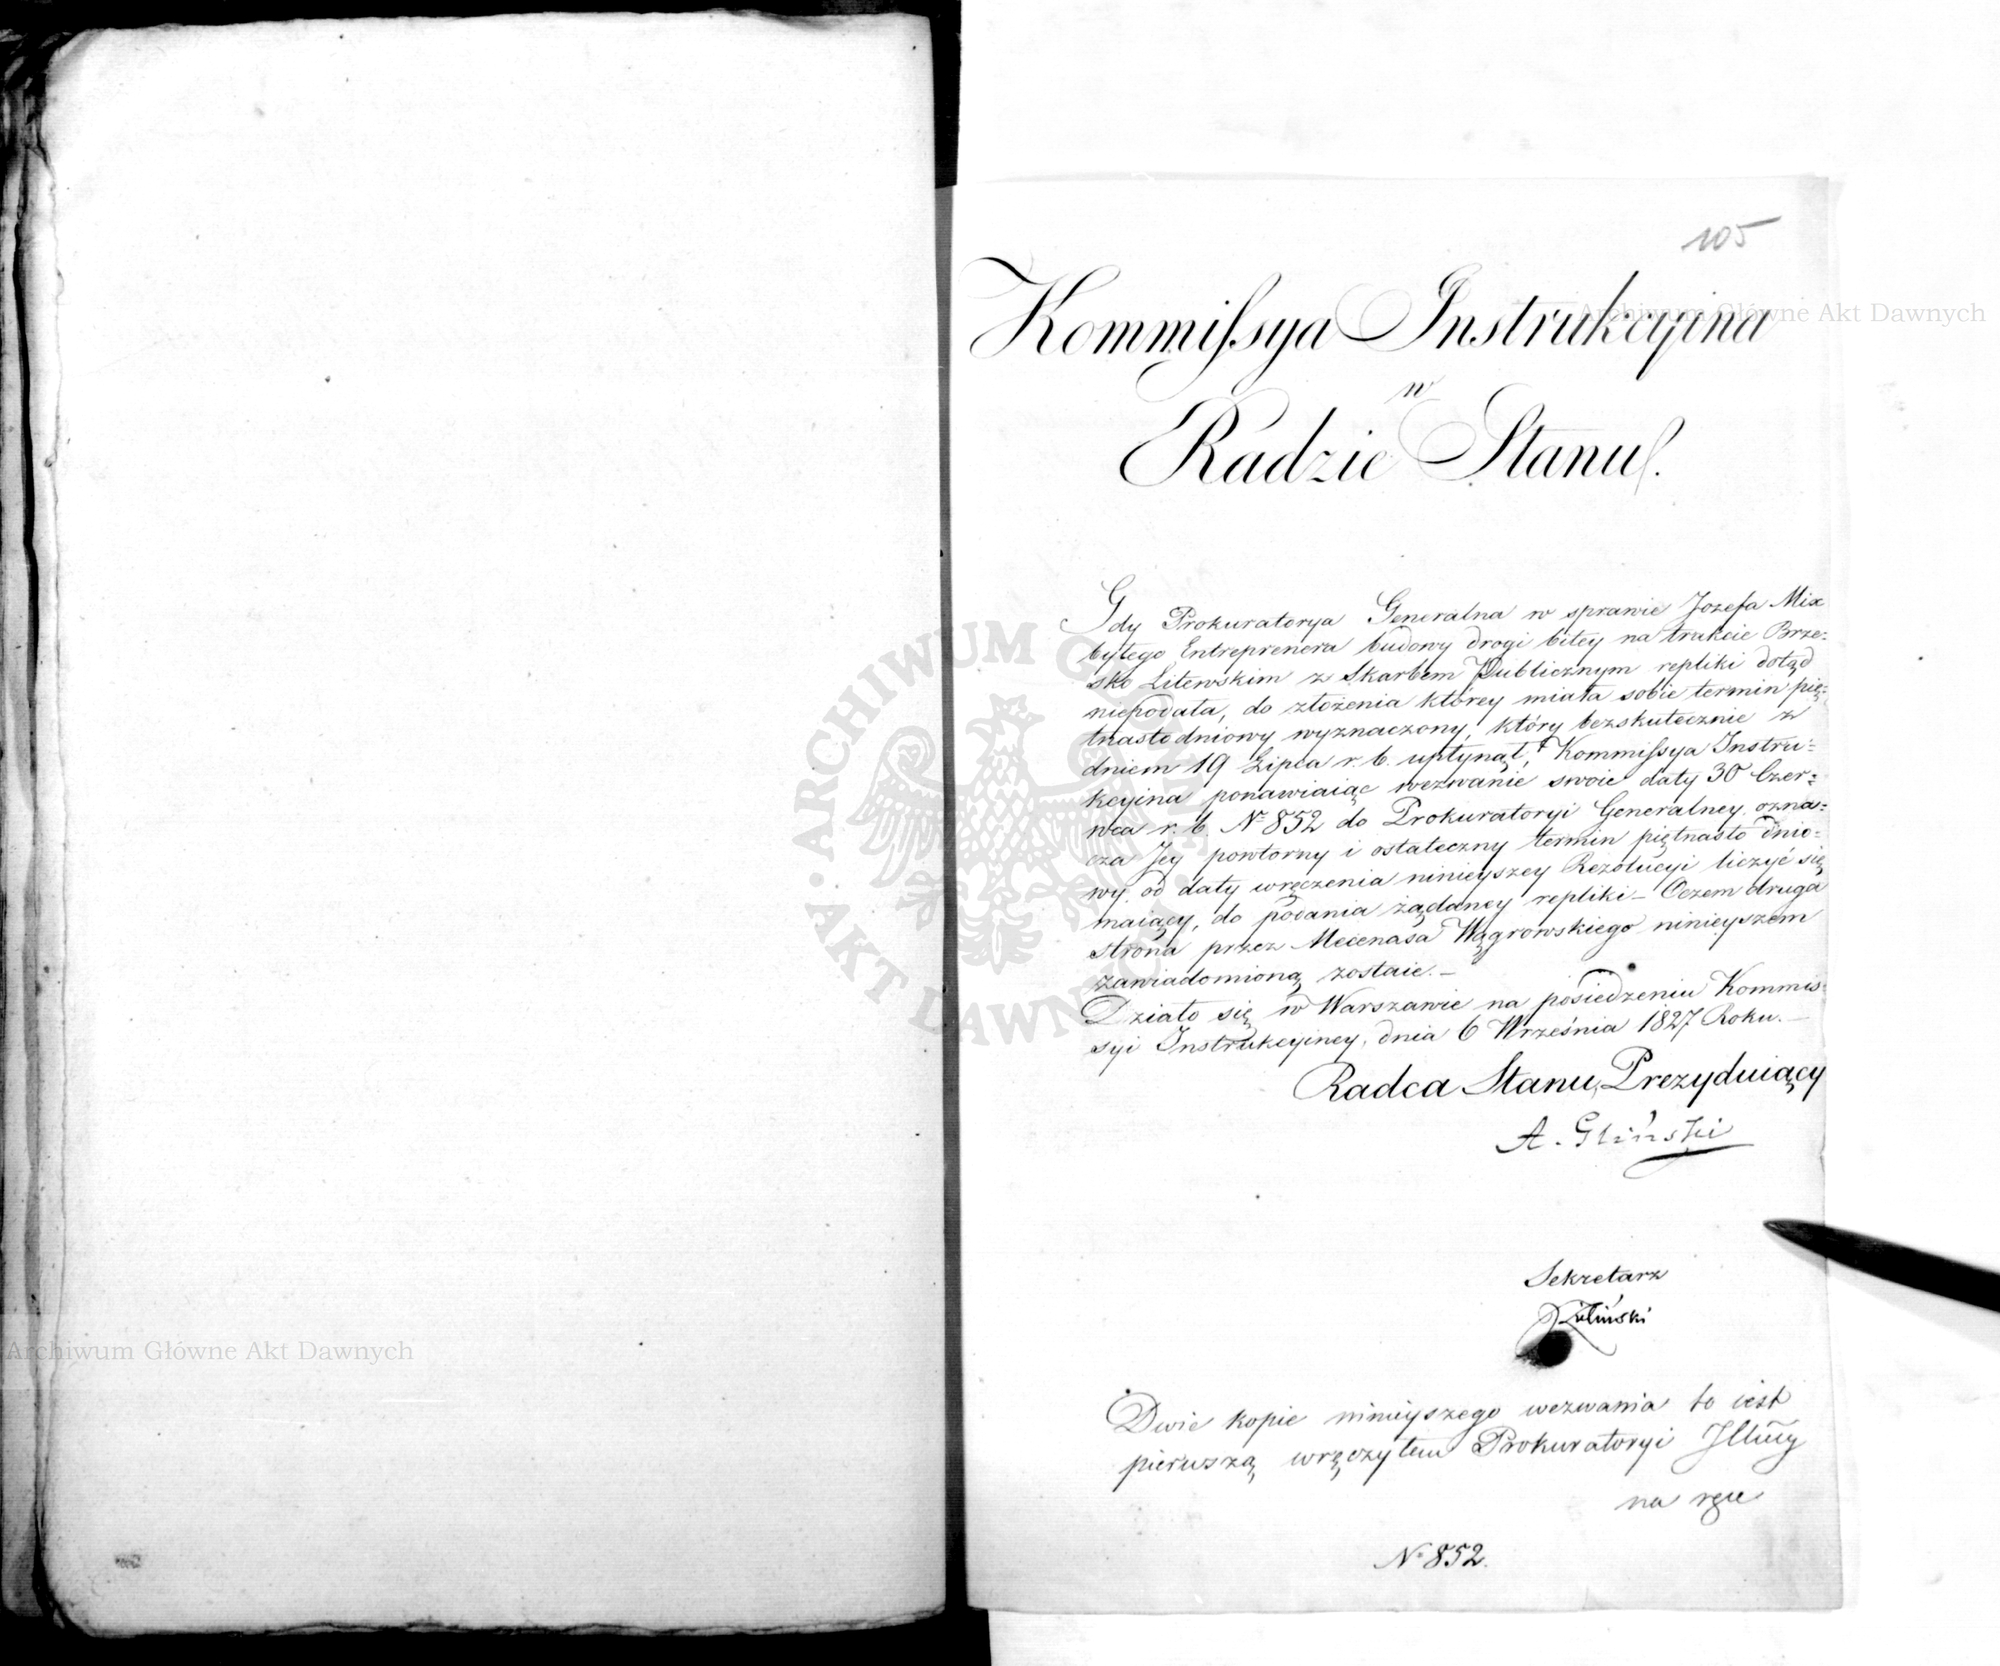 105
Kommissya Instrukcyina
w
Radzie Stanu.
Gdy Prokuratorya Generalna w sprawie Jozefa Mix
byłego Entreprenera budowy drogi bitey na trakcie Brze=
sko Litewskim z Skarbem Publicznym repliki dotąd
niepodała, do złożenia którey miała sobie termin pię=
tnasto dniowy wyznaczony, który bezskutecznie z
dniem 19 Lipca r. b. upłynął, Kommissya Instru=
kcyina ponawiaiąc wezwanie swoie daty 30 Czer=
wca r. b. No 852 do Prokuratoryi Generalney. ozna=
cza Jey powtorny i ostateczny termin piętnasto dnio=
wy, od daty wręczenia ninieyszey Rezolucyi liczyć się
maiący, do podania żądaney repliki – Oczem druga
strona przez Mecenasa Wągrowskiego ninieyszem
zawiadomioną zostaie. –
Działo się w Warszawie na posiedzeniu Kommis=
syi Instrukcyiney, dnia 6 Września 1827 Roku. –
Radca Stanu, Prezyduiący
A. Gliński
Sekretarz
Dwie kopie ninieyszego wezwania to iest
pierwszą wręczyłem Prokuratoryi
na ręce
No 852.
Archiwum Główne Akt Dawnych
Archiwum Główne Akt Dawnych
ARCHIWUM GŁÓWNE · AKT DAWNYCH ·